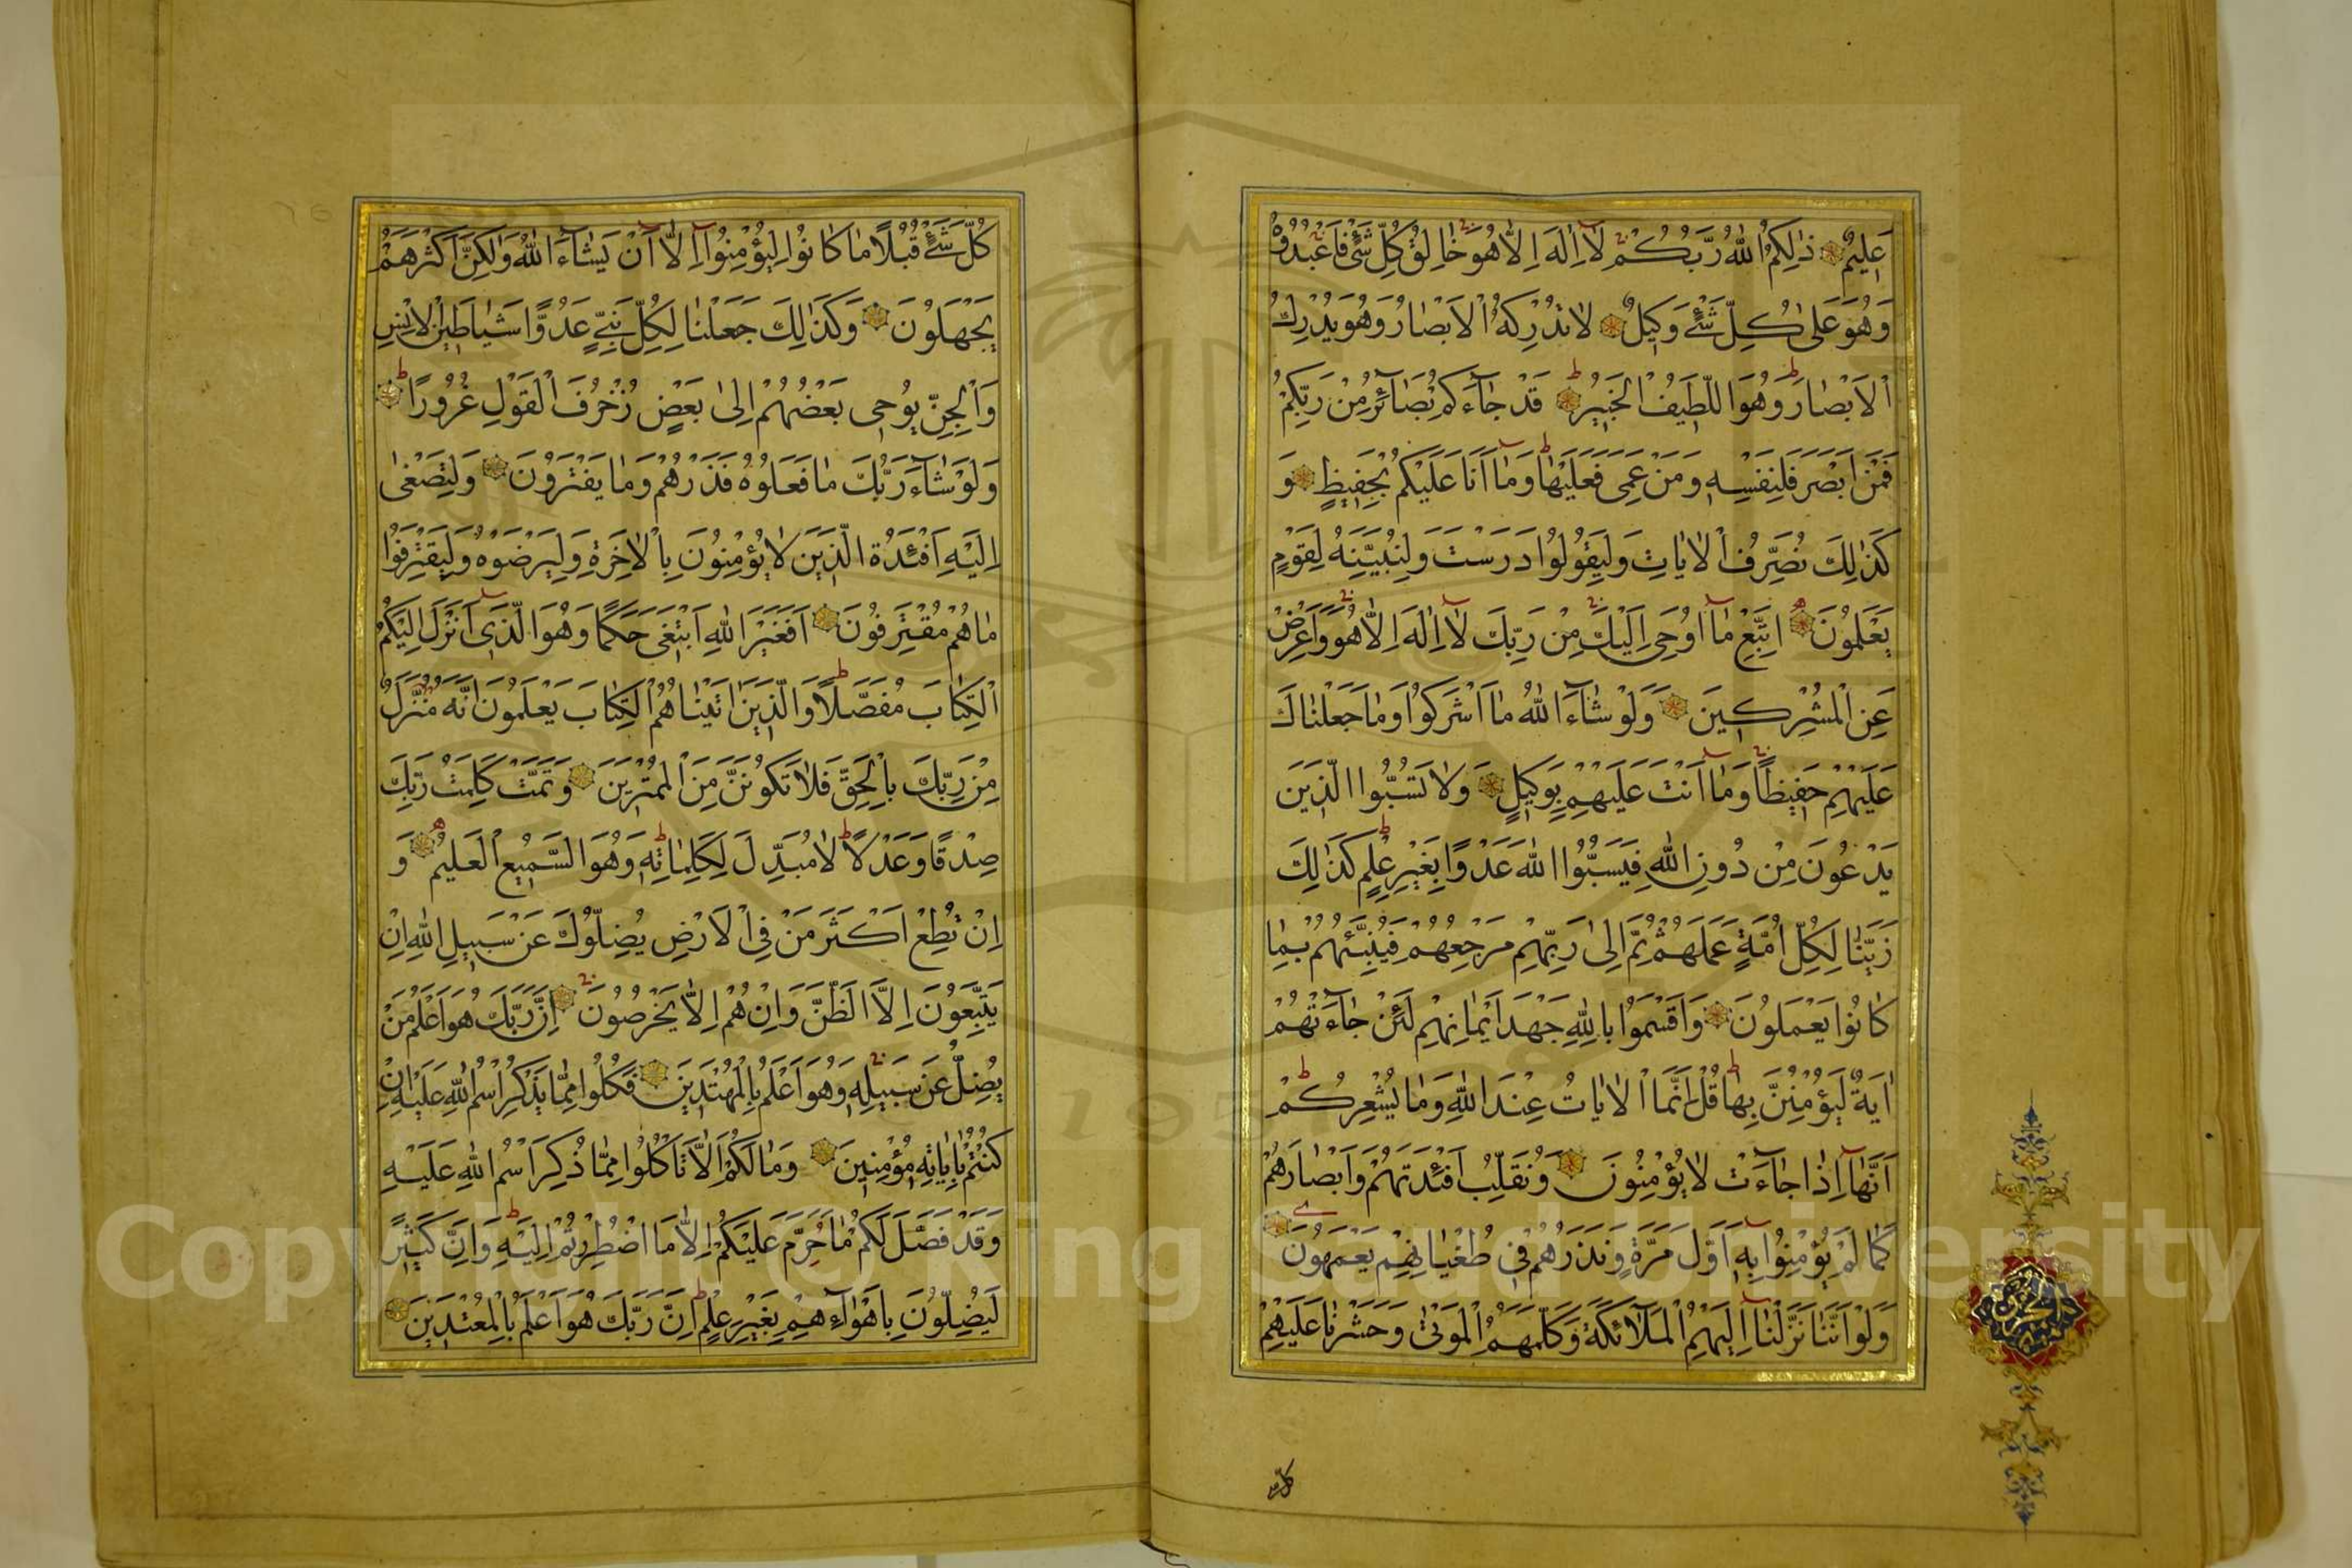 عَلِيمٌ ذٰلِكُمُ اللّٰهُ رَبُّكُمْ لَا اِلٰهَ اِلَّا هُوَ خَالِقُ كُلِّ شَيْءٍ فَاعْبُدُوهُ
وَهُوَ عَلٰى كُلِّ شَيْءٍ وَكِيلٌ لَا تُدْرِكُهُ الْاَبْصَارُ وَهُوَ يُدْرِكُ
الْاَبْصَارَ وَهُوَ اللَّطِيفُ الْخَبِيرُ قَدْ جَاءَكُمْ بَصَائِرُ مِنْ رَبِّكُمْ
فَمَنْ اَبْصَرَ فَلِنَفْسِهِ وَمَنْ عَمِيَ فَعَلَيْهَا وَمَا اَنَا عَلَيْكُمْ بِحَفِيظٍ وَ
كَذٰلِكَ نُصَرِّفُ الْاٰيَاتِ وَلِيَقُولُوا دَرَسْتَ وَلِنُبَيِّنَهُ لِقَوْمٍ
يَعْلَمُونَ اِتَّبِعْ مَا اُوحِيَ اِلَيْكَ مِنْ رَبِّكَ لَا اِلٰهَ اِلَّا هُوَ وَاَعْرِضْ
عَنِ الْمُشْرِكِينَ وَلَوْ شَاءَ اللّٰهُ مَا اَشْرَكُوا وَمَا جَعَلْنَاكَ
عَلَيْهِمْ حَفِيظًا وَمَا اَنْتَ عَلَيْهِمْ بِوَكِيلٍ وَلَا تَسُبُّوا الَّذِينَ
يَدْعُونَ مِنْ دُونِ اللّٰهِ فَيَسُبُّوا اللّٰهَ عَدْوًا بِغَيْرِ عِلْمٍ كَذٰلِكَ
زَيَّنَّا لِكُلِّ اُمَّةٍ عَمَلَهُمْ ثُمَّ اِلٰى رَبِّهِمْ مَرْجِعُهُمْ فَيُنَبِّئُهُمْ بِمَا
كَانُوا يَعْمَلُونَ وَاَقْسَمُوا بِاللّٰهِ جَهْدَ اَيْمَانِهِمْ لَئِنْ جَاءَتْهُمْ
اٰيَةٌ لَيُؤْمِنُنَّ بِهَا قُلْ اِنَّمَا الْاٰيَاتُ عِنْدَ اللّٰهِ وَمَا يُشْعِرُكُمْ
اَنَّهَا اِذَا جَاءَتْ لَا يُؤْمِنُونَ وَنُقَلِّبُ اَفْئِدَتَهُمْ وَاَبْصَارَهُمْ
كَمَا لَمْ يُؤْمِنُوا بِهِ اَوَّلَ مَرَّةٍ وَنَذَرُهُمْ فِي طُغْيَانِهِمْ يَعْمَهُونَ
وَلَوْ اَنَّنَا نَزَّلْنَا اِلَيْهِمُ الْمَلَائِكَةَ وَكَلَّمَهُمُ الْمَوْتٰى وَحَشَرْنَا عَلَيْهِمْ
كُلَّ شَيْءٍ قُبُلًا مَا كَانُوا لِيُؤْمِنُوا اِلَّا اَنْ يَشَاءَ اللّٰهُ وَلٰكِنَّ اَكْثَرَهُمْ
يَجْهَلُونَ وَكَذٰلِكَ جَعَلْنَا لِكُلِّ نَبِيٍّ عَدُوًّا شَيَاطِينَ الْاِنْسِ
وَالْجِنِّ يُوحِي بَعْضُهُمْ اِلٰى بَعْضٍ زُخْرُفَ الْقَوْلِ غُرُورًا
وَلَوْ شَاءَ رَبُّكَ مَا فَعَلُوهُ فَذَرْهُمْ وَمَا يَفْتَرُونَ وَلِتَصْغٰى
اِلَيْهِ اَفْئِدَةُ الَّذِينَ لَا يُؤْمِنُونَ بِالْاٰخِرَةِ وَلِيَرْضَوْهُ وَلِيَقْتَرِفُوا
مَا هُمْ مُقْتَرِفُونَ اَفَغَيْرَ اللّٰهِ اَبْتَغِي حَكَمًا وَهُوَ الَّذِي اَنْزَلَ اِلَيْكُمُ
الْكِتَابَ مُفَصَّلًا وَالَّذِينَ اٰتَيْنَاهُمُ الْكِتَابَ يَعْلَمُونَ اَنَّهُ مُنَزَّلٌ
مِنْ رَبِّكَ بِالْحَقِّ فَلَا تَكُونَنَّ مِنَ الْمُمْتَرِينَ وَتَمَّتْ كَلِمَتُ رَبِّكَ
صِدْقًا وَعَدْلًا لَا مُبَدِّلَ لِكَلِمَاتِهِ وَهُوَ السَّمِيعُ الْعَلِيمُ وَ
اِنْ تُطِعْ اَكْثَرَ مَنْ فِي الْاَرْضِ يُضِلُّوكَ عَنْ سَبِيلِ اللّٰهِ اِنْ
يَتَّبِعُونَ اِلَّا الظَّنَّ وَاِنْ هُمْ اِلَّا يَخْرُصُونَ اِنَّ رَبَّكَ هُوَ اَعْلَمُ مَنْ
يَضِلُّ عَنْ سَبِيلِهِ وَهُوَ اَعْلَمُ بِالْمُهْتَدِينَ فَكُلُوا مِمَّا ذُكِرَ اسْمُ اللّٰهِ عَلَيْهِ اِنْ
كُنْتُمْ بِاٰيَاتِهِ مُؤْمِنِينَ وَمَا لَكُمْ اَلَّا تَأْكُلُوا مِمَّا ذُكِرَ اسْمُ اللّٰهِ عَلَيْهِ
وَقَدْ فَصَّلَ لَكُمْ مَا حَرَّمَ عَلَيْكُمْ اِلَّا مَا اضْطُرِرْتُمْ اِلَيْهِ وَاِنَّ كَثِيرًا
لَيُضِلُّونَ بِاَهْوَائِهِمْ بِغَيْرِ عِلْمٍ اِنَّ رَبَّكَ هُوَ اَعْلَمُ بِالْمُعْتَدِينَ
Copyright © King Saud University
1957